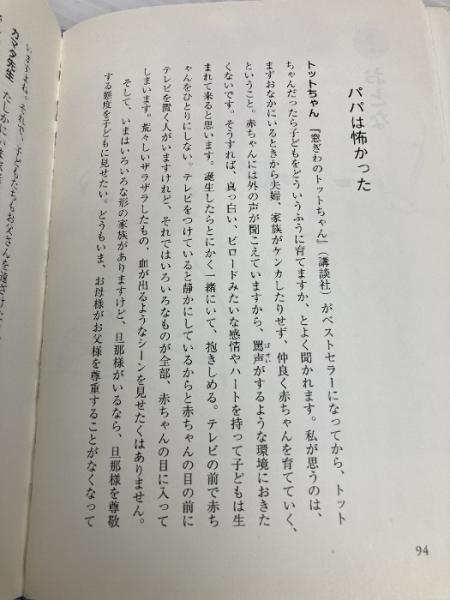 パパは怖かった
トットちゃん 『窓ぎわのトットちゃん』(講談社)がベストセラーになってから、トット
ちゃんだったら子どもをどういうふうに育てますか、とよく聞かれます。私が思うのは、
まずおなかにいるときから夫婦、家族がケンカしたりせず、仲良く赤ちゃんを育てていく、
ということ。赤ちゃんには外の声が聞こえていますから、罵声がするような環境におきた
ばせい
くないです。そうすれば、真っ白い、ビロードみたいな感情やハートを持って子どもは生
まれて来ると思います。誕生したらとにかく一緒にいて、抱きしめる。テレビの前で赤ち
ゃんをひとりにしない。テレビをつけていると静かにしているからと赤ちゃんの目の前に
テレビを置く人がいますけれど、それではいろいろなものが全部、赤ちゃんの目に入って
しまいます。荒々しいザラザラしたもの、血が出るようなシーンを見せたくはありません。
そして、いまはいろいろな形の家族がありますけど、旦那様がいるなら、旦那様を尊敬
する態度を子どもに見せたい。どうもいま、お母様がお父様を尊重することがなくなって
94
いますよね。それで、子どもたちもお父さんを遠ざけた
カマタ先生 たしかにいま